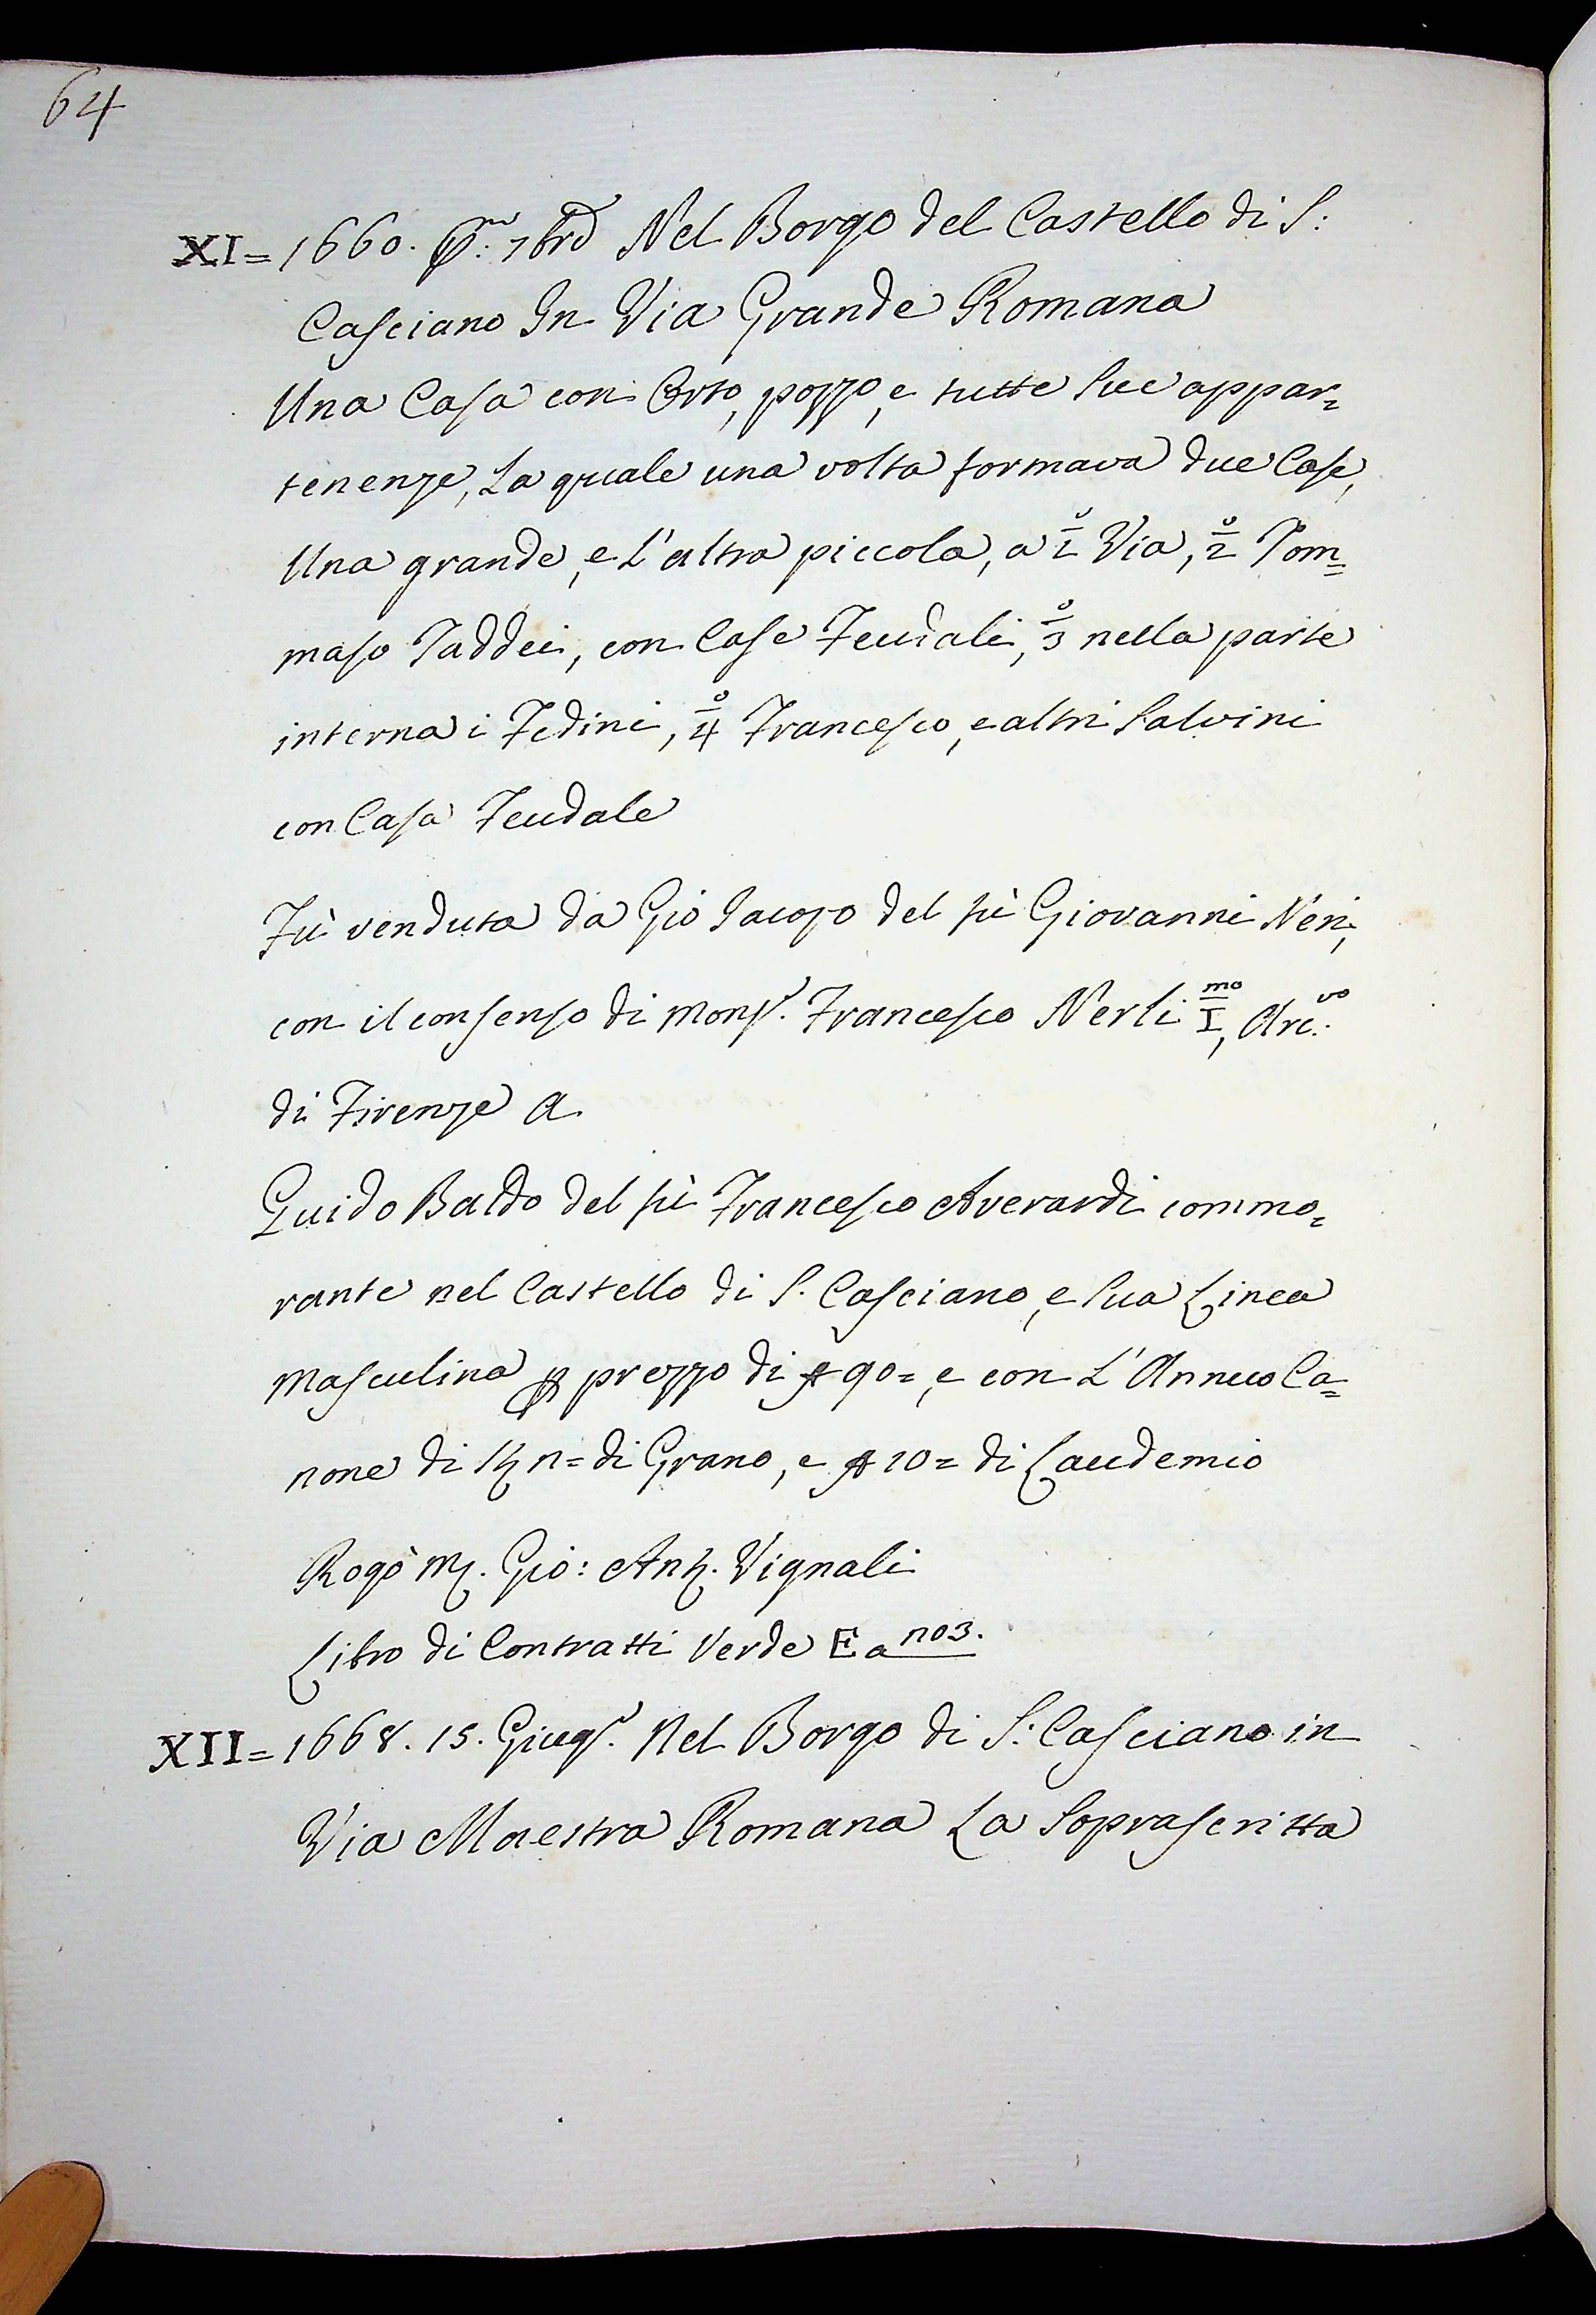 64
XI = 1660. P.mo 7bre Nel Borgo del Castello di S:
Casciano In Via Grande Romana
Una Casa con Orto, pozzo, e tutte Sue appar=
tenenze, La quale una volta formava due Case,
Una grande, e L'altra piccola, a 1° Via, 2° Tom=
maso Taddei, con Case Feudali, 3° nella parte
interna i Fedini, 4° Francesco, e altri Salvini
con Casa Feudale
Fù venduta da Gio Iacopo del fù Giovanni Neri,
con il consenso di Mons.r Francesco Nerli I.mo, Arc.vo
di Firenze a
Guido Baldo del fù Francesco Averardi commo=
rante nel Castello di S. Casciano, e Sua Linea
Masculina p prezzo di 90 =, e con L'Annuo Ca=
none di n = di Grano, e 10 = di Laudemio
Rogò M. Gio: Ant. Vignali
Libro di Contratti Verde E a 1103.
XII = 1668. 15. Giug.o Nel Borgo di S. Casciano in
Via Maestra Romana La Soprascritta